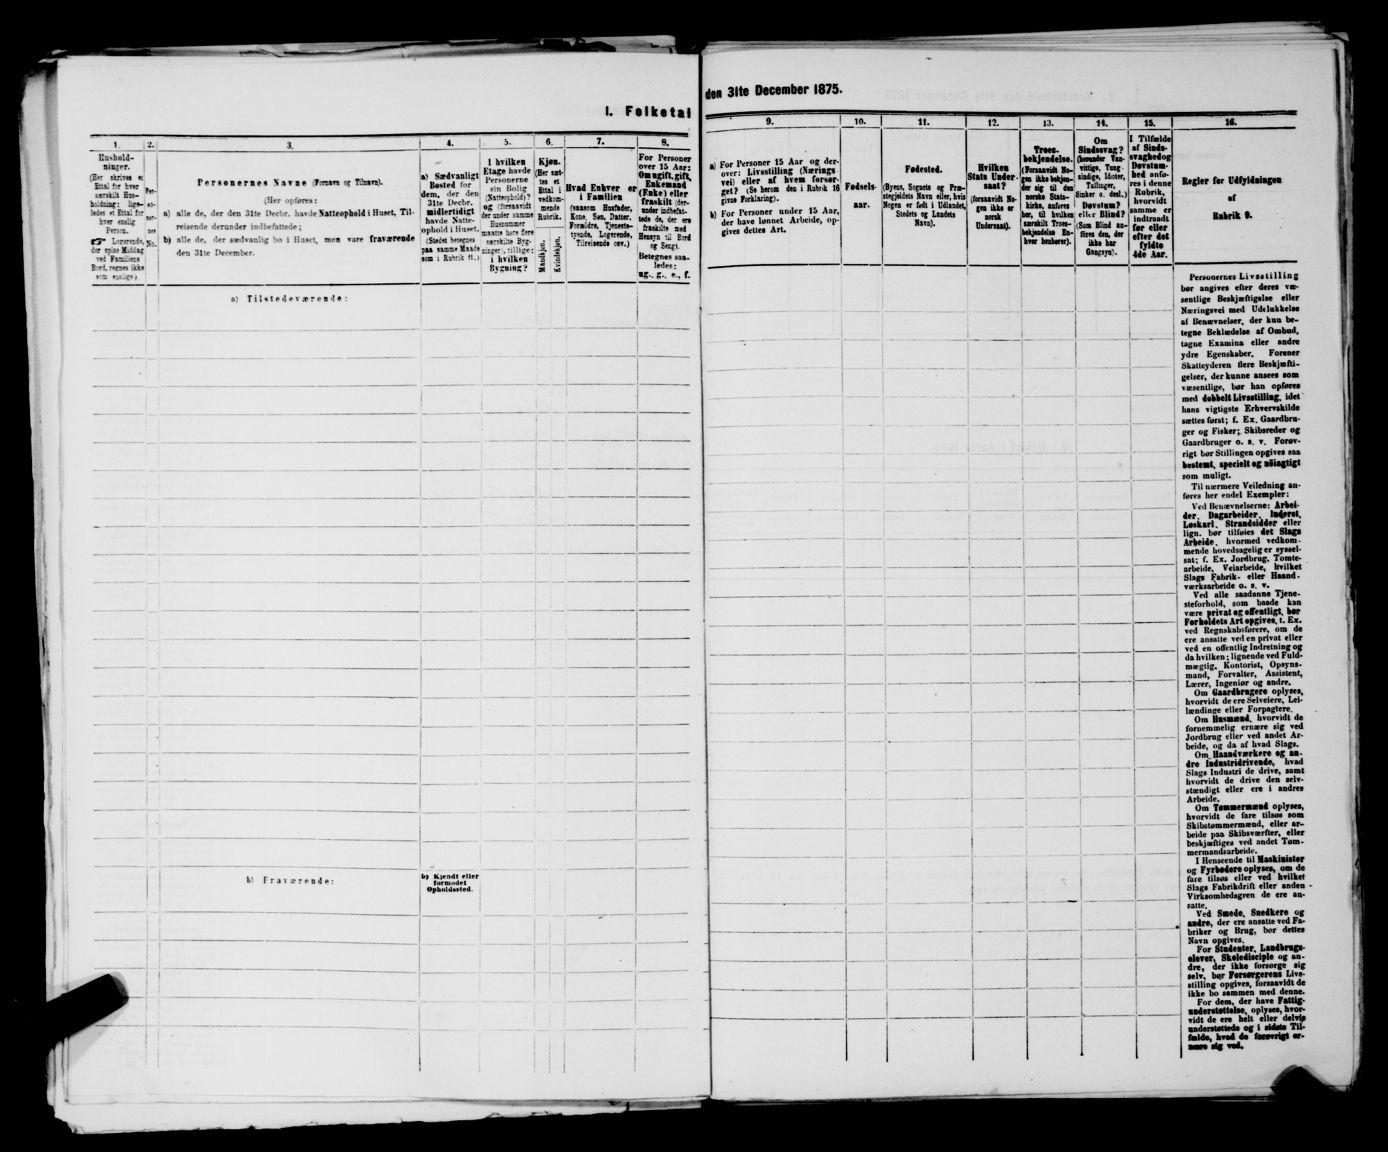 1. Folketal
den 31te December 1875.
1.
Hushold-
ninger.
(Her skrives et
Ettal for hver
særskilt Hus-
holdning; lige-
ledes et Ettal for
hver enslig
Person.
☞ Logerende,
der spise Middag
ved Familiens
Bord, regnes ikke
som enslige).
2.
Per-
so-
ner-
nes
No.
3.
Personernes Navne (Fornavn og Tilnavn).
(Her opføres:
a) alle de, der den 31te Decbr. havde Natteophold i Huset, Til-
reisende derunder indbefattede;
b) alle de, der sædvanlig bo i Huset, men vare fraværende
den 31te December.
4.
a) Sædvanligt
Bosted for
dem, der den
31te Decbr.
midlertidigt
havde Natte-
ophold i Huset.
(Stedet betegnes
paa samme Maade
som i Rubrik 11.)
5.
I hvilken
Etage havde
Personerne
sin Bolig
(Natteophold)?
og (forsaavidt
der under samme
Husnummer
maatte høre flere
særskilte Byg-
ninger), tillige:
i hvilken
Bygning?
6.
Kjøn.
(Her sæt-
tes et
Ettal i
vedkom-
mende
Rubrik.
Mandkjøn.
Kvindekjøn.
7.
Hvad Enhver er
i Familien
(saasom Husfader,
Kone, Søn, Datter,
Forældre, Tjeneste-
tyende, Logerende,
Tilreisende osv.).
8.
For Personer
over 15 Aar:
Om ugift, gift,
Enkemand
(Enke) eller
fraskilt (der-
under indbefat-
tede de, der ere
fraskilte med
Hensyn til Bord
og Seng).
Betegnes saa-
ledes:
ug., g., e., f.
9.
a) For Personer 15 Aar og der-
over: Livsstilling (Nærings-
vei) eller af hvem forsør-
get? (Se herom den i Rubrik 16
givne Forklaring).
b) For Personer under 15 Aar,
der have lønnet Arbeide, op-
gives dettes Art.
10.
Fødsels-
aar.
11.
Fødested.
(Byens, Sognets og Præ-
stegjeldets Navn eller, hvis
Nogen er født i Udlandet,
Stedets og Landets
Navn).
12.
Hvilken
Stats Under-
saat?
(forsaavidt No-
gen ikke er
norsk
Undersaat).
13.
Troes-
bekjendelse.
(Forsaavidt No-
gen ikke bekjen-
der sig til den
norske Stats-
kirke, anføres
her, til hvilken
særskilt Troes-
bekjendelse En-
hver henhører).
14.
Om
Sindssvag?
(herunder Van-
vittige, Tung-
sindige, Idioter,
Tullinger,
Sinker o. desl.)
Døvstum?
eller Blind?
(Som Blind an-
føres den, der
ikke har
Gangsyn).
15.
I Tilfælde
af Sinds-
svaghed og
Døvstum-
hed anfø-
res i denne
Rubrik,
hvorvidt
samme er
indtraadt
før eller
efter det
fyldte
4de Aar.
16.
Regler for Udfyldningen
af
Rubrik 9.
a) Tilstedeværende:
b) Fraværende:
b) Kjendt eller
formodet
Opholdssted.
Personernes Livsstilling
bør angives efter deres væ-
sentlige Beskjæftigelse eller
Næringsvei med Udelukkelse
af Benævnelser, der kun be-
tegne Beklædelse af Ombud,
tagne Examina eller andre
ydre Egenskaber. Forener
Skatteyderen flere Beskjæfti-
gelser, der kunne ansees som
væsentlige, bør han opføres
med dobbelt Livsstilling, idet
hans vigtigste Erhvervskilde
sættes først; f. Ex. Gaardbru-
ger og Fisker; Skibsreder og
Gaardbruger o. s. v. Forøv-
rigt bør Stillingen opgives saa
bestemt, specielt og nøiagtigt
som muligt.
Til nærmere Veiledning an-
føres her endel Exempler:
Ved Benævnelserne: Arbei-
der, Dagarbeider, Inderst,
Løskarl, Strandsidder eller
lign. bør tilføies det Slags
Arbeide, hvormed vedkom-
mende hovedsagelig er syssel-
sat; f. Ex. Jordbrug, Tomte-
arbeide, Veiarbeide, hvilket
Slags Fabrik- eller Haand-
værksarbeide o. s. v.
Ved alle saadanne Tjene-
steforhold, som baade kan
være privat og offentligt, bør
Forholdets Art opgives, f. Ex.
ved Regnskabsførere, om de
ere ansatte ved en privat eller
ved en offentlig Indretning og
da hvilken; lignende ved Fuld-
mægtig, Kontorist, Opsyns-
mand, Forvalter, Assistent,
Lærer, Ingeniør og andre.
Om Gaardbrugere oplyses,
hvorvidt de ere Selveiere, Lei-
lændinge eller Forpagtere.
Om Husmænd, hvorvidt de
fornemmelig ernære sig ved
Jordbrug eller ved andet Ar-
beide, og da af hvad Slags.
Om Haandværkere og an-
dre Industridrivende, hvad
Slags Industri de drive, samt
hvorvidt de drive den selv-
stændigt eller ere i andres
Arbeide.
Om Tømmermænd oplyses,
hvorvidt de fare tilsøs som
Skibstømmermænd, eller ar-
beide paa Skibsværfter, eller
beskjæftiges ved andet Tøm-
mermandsarbeide.
I Henseende til Maskinister
og Fyrbødere oplyses, om de
fare tilsøs eller ved hvilket
Slags Fabrikdrift eller anden
Virksomhedsgren de ere an-
satte.
Ved Smede, Snedkere og
andre, der ere ansatte ved Fa-
briker og Brug, bør dettes
Navn opgives.
For Studenter, Landbrugs-
elever, Skoledisciple og an-
dre, der ikke forsørge sig
selv, bør Forsørgerens Livs-
stilling opgives, forsaavidt de
ikke bo sammen med denne.
For dem, der have Fattig-
understøttelse, oplyses, hvor-
vidt de ere helt eller delvis
understøttede og i sidste Til-
fælde, hvad de forøvrigt er-
nære sig ved.